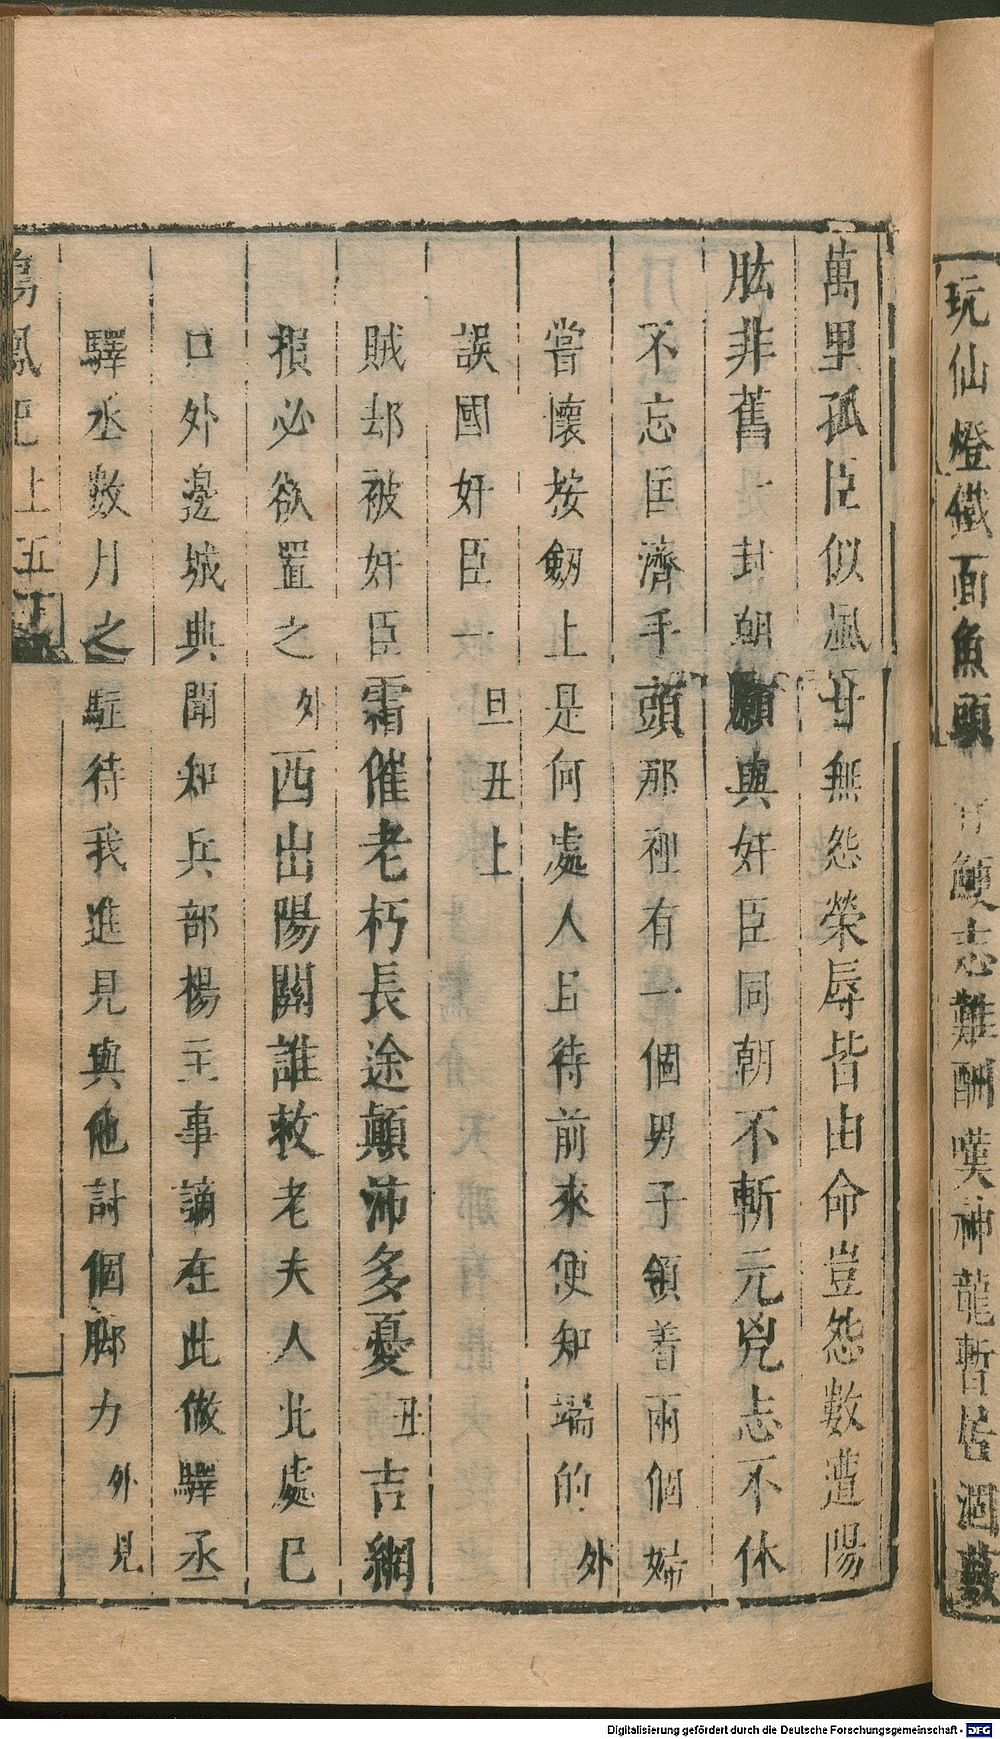 玩仙燈鐵面魚頭 鯁志難酬嘆神龍暫居涸藪
萬里孤臣似風母無怨榮辱皆由命豈怨數遭陽
肱非舊 封朝願與奸臣同朝不斬元兇志不休
不忘匡濟手頭那裡有一個男子領着兩個婦
嘗懷按劍上是何處人且待前來便知端的外
誤國奸臣 旦丑上
賊却被奸臣霜催老朽長途顛沛多憂丑吉網
損必欲置之外西出陽關誰救老夫人此處已
口外邊城典聞知兵部楊主事謫在此做驛丞
驛丞數月之駐待我進見與他討個脚力外見
鳴鳳記上五
Digitalisierung gefördert durch die Deutsche Forschungsgemeinschaft - DFG